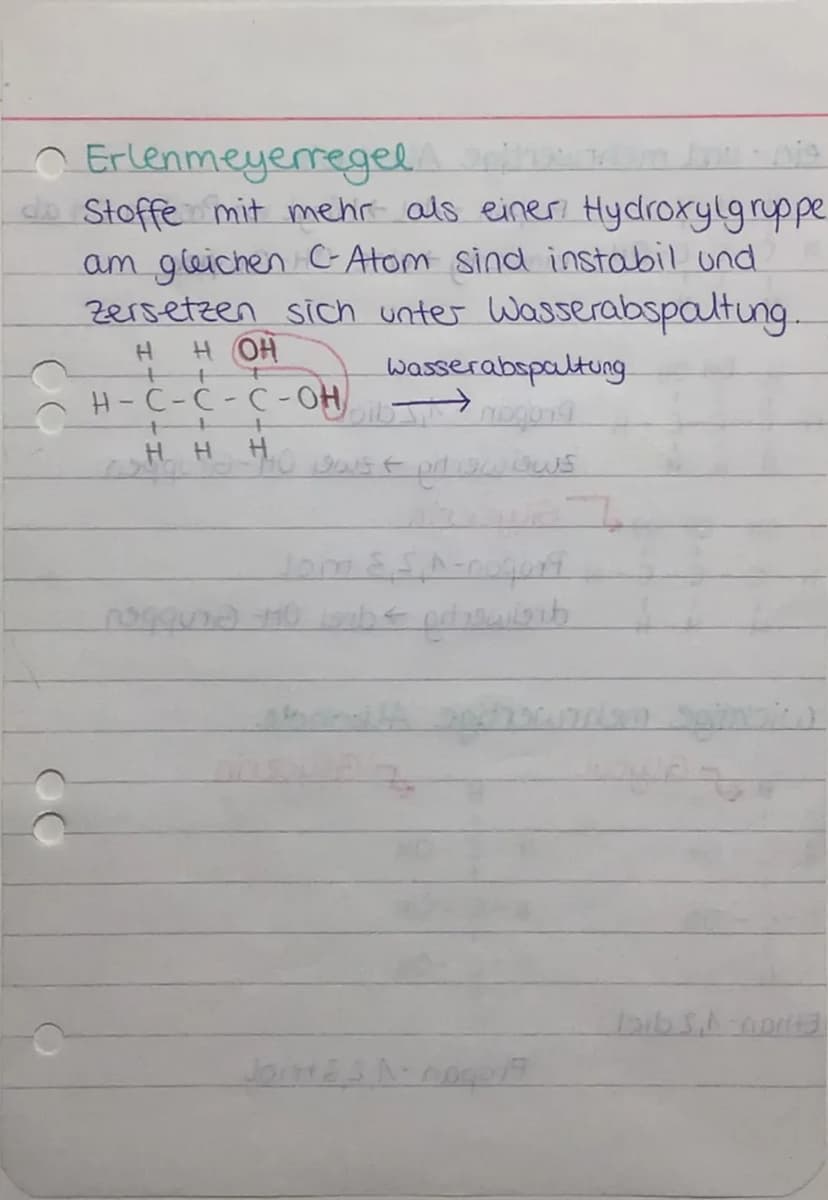 Erlenmeyerregel
Stoffe mit mehr als einer Hydroxylgruppe
am gleichen C-Atom sind instabil und
zersetzen sich unter Wasserabspaltung.
H H OH
Wasserabspaltung
H-C-C-C-OH →
H H H